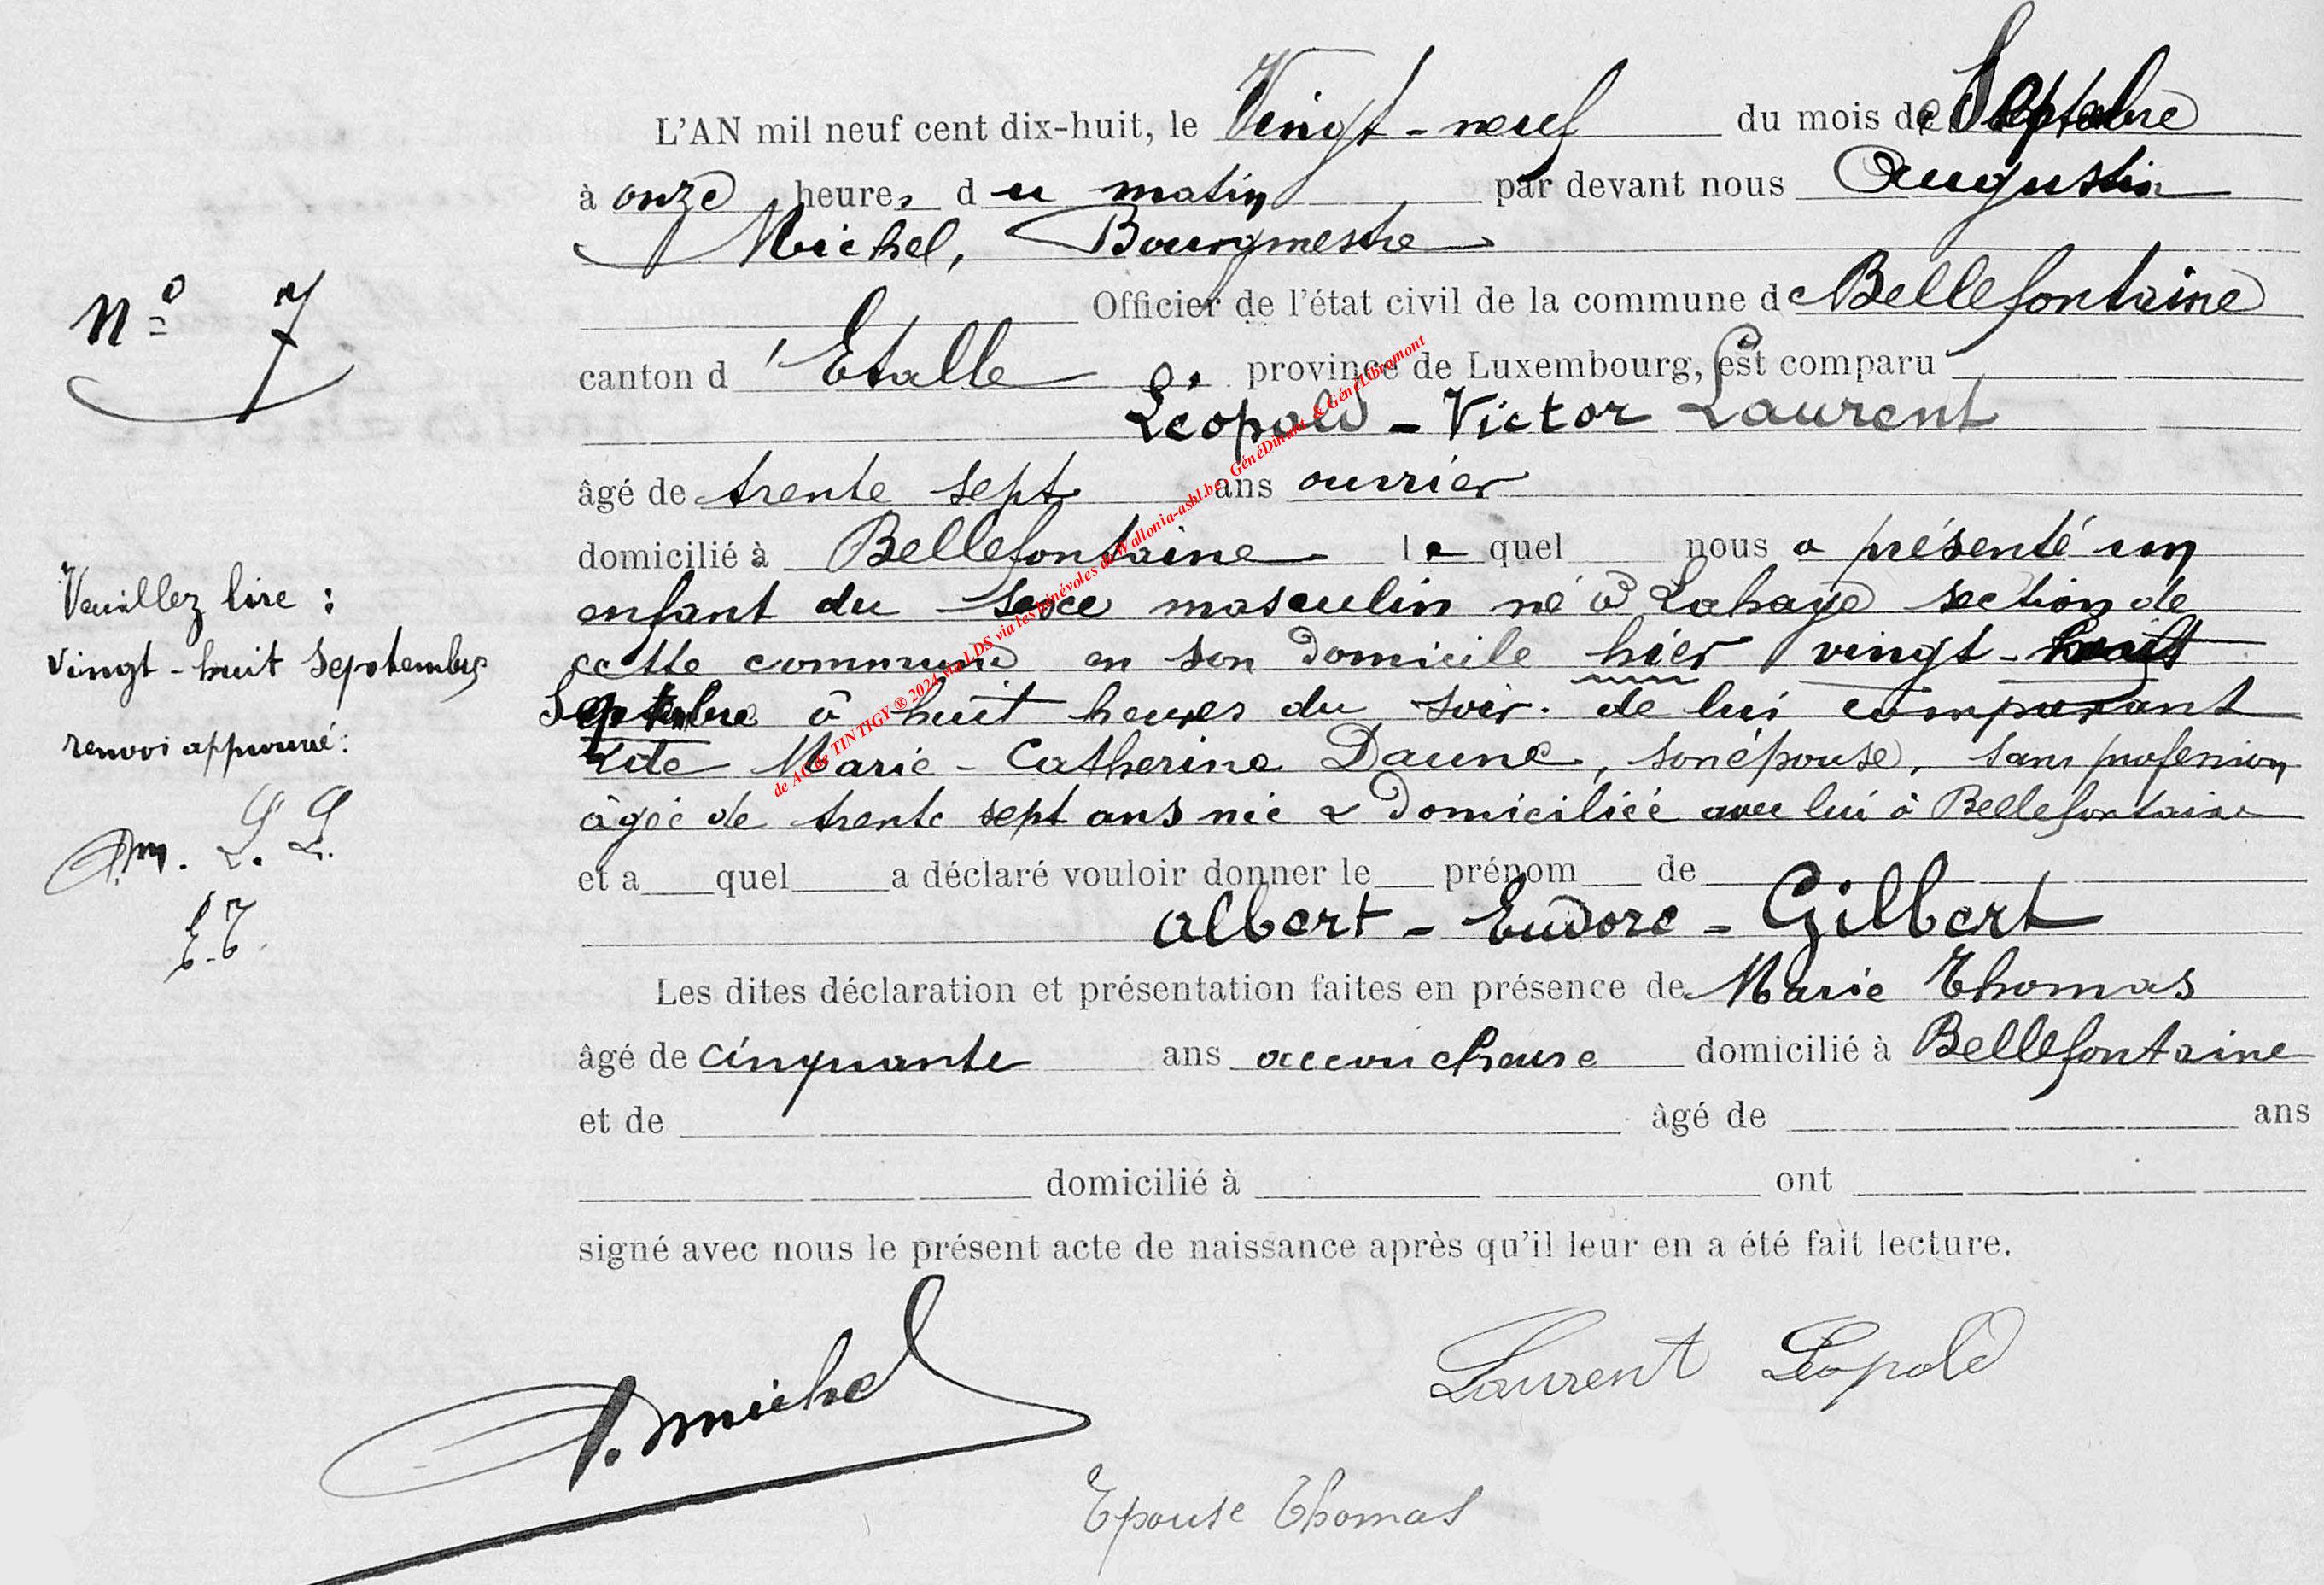 L'AN mil neuf cent dix-huit, le Vingt-neuf du mois de Septembre
à onze heures du matin par devant nous Augustin
Michel, Bourgmestre
Officier de l'état civil de la commune de Bellefontaine
N° 7
canton d'Etalle province de Luxembourg, est comparu
Léopold-Victor Laurent
âgé de trente sept ans ouvrier
domicilié à Bellefontaine lequel nous a présenté un
enfant du sexe masculin né à Lahage section de
cette commune en son domicile hier vingt-huit
Septembre à huit heures du soir. de lui comparant
& de Marie-Catherine Daune, son épouse, sans profession
âgée de trente sept ans née & domiciliée avec lui à Bellefontaine
et a quel a déclaré vouloir donner le prénom de
Albert-Eudore-Gilbert
Les dites déclaration et présentation faites en présence de Marie Thomas
âgé de cinquante ans accoucheuse domicilié à Bellefontaine
et de âgé de ans
domicilié à ont
signé avec nous le présent acte de naissance après qu'il leur en a été fait lecture.
Veuillez lire :
vingt-huit Septembre
renvoi approuvé :
A.m. L. L.
E.T.
A. michel
Laurent Léopold
Epouse Thomas